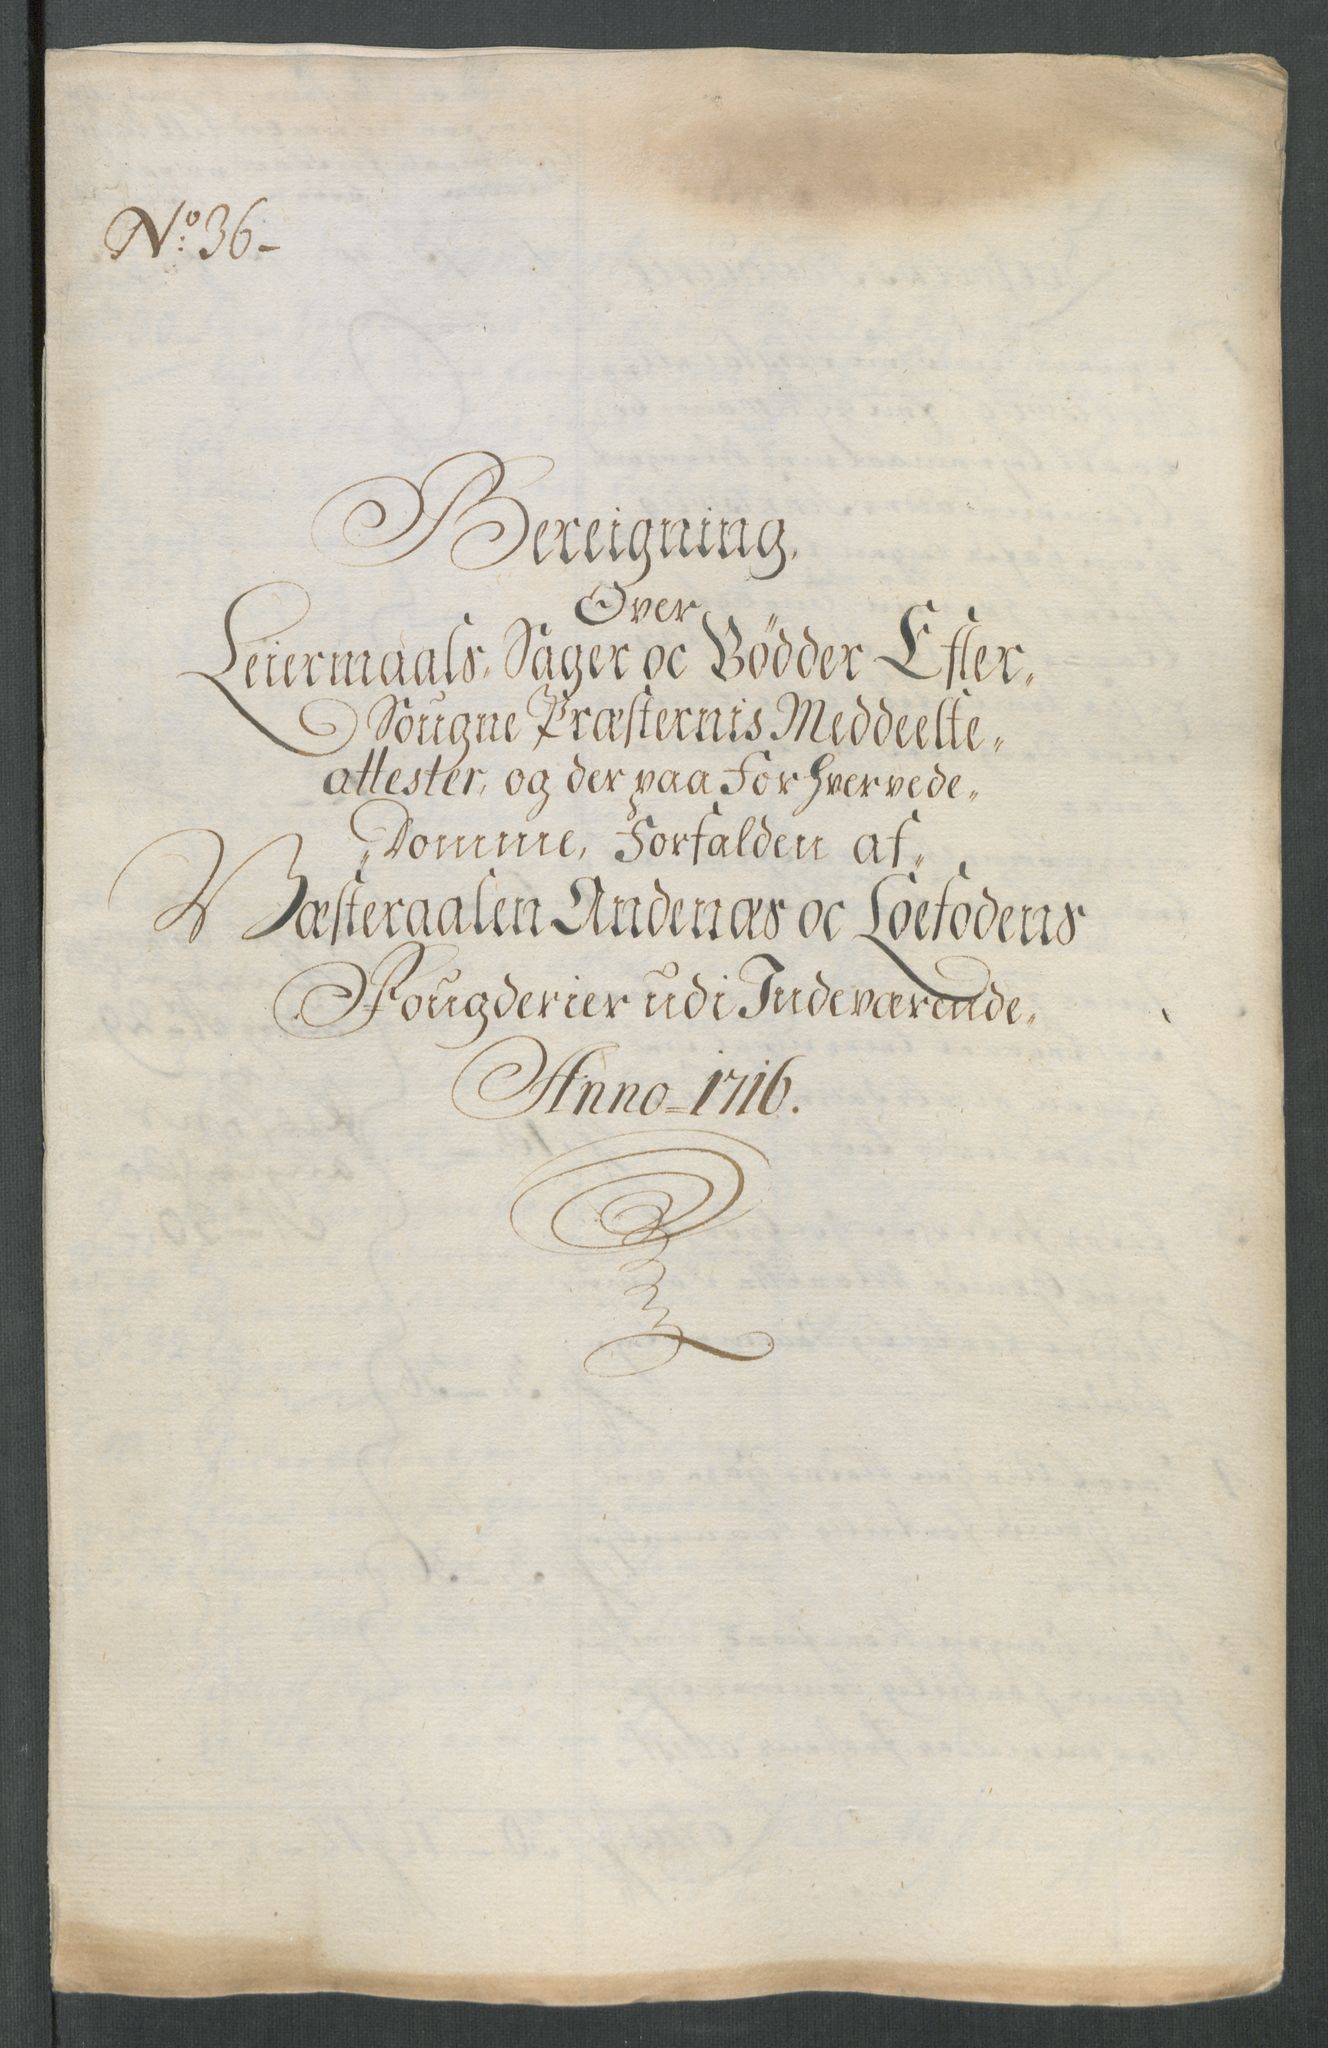 No: 36-
Bereigning,
Over
Leiermaals, Sager oc Bödder Efter,,
Sougne Præsternis Meddeelte,,
attester, og der paa Forhvervede,,
,,Domme, Forfalden af,,
Wæsteraalen Andenæs oc Loefodens
Fougderier udi Indeværende,,
Anno=1716.